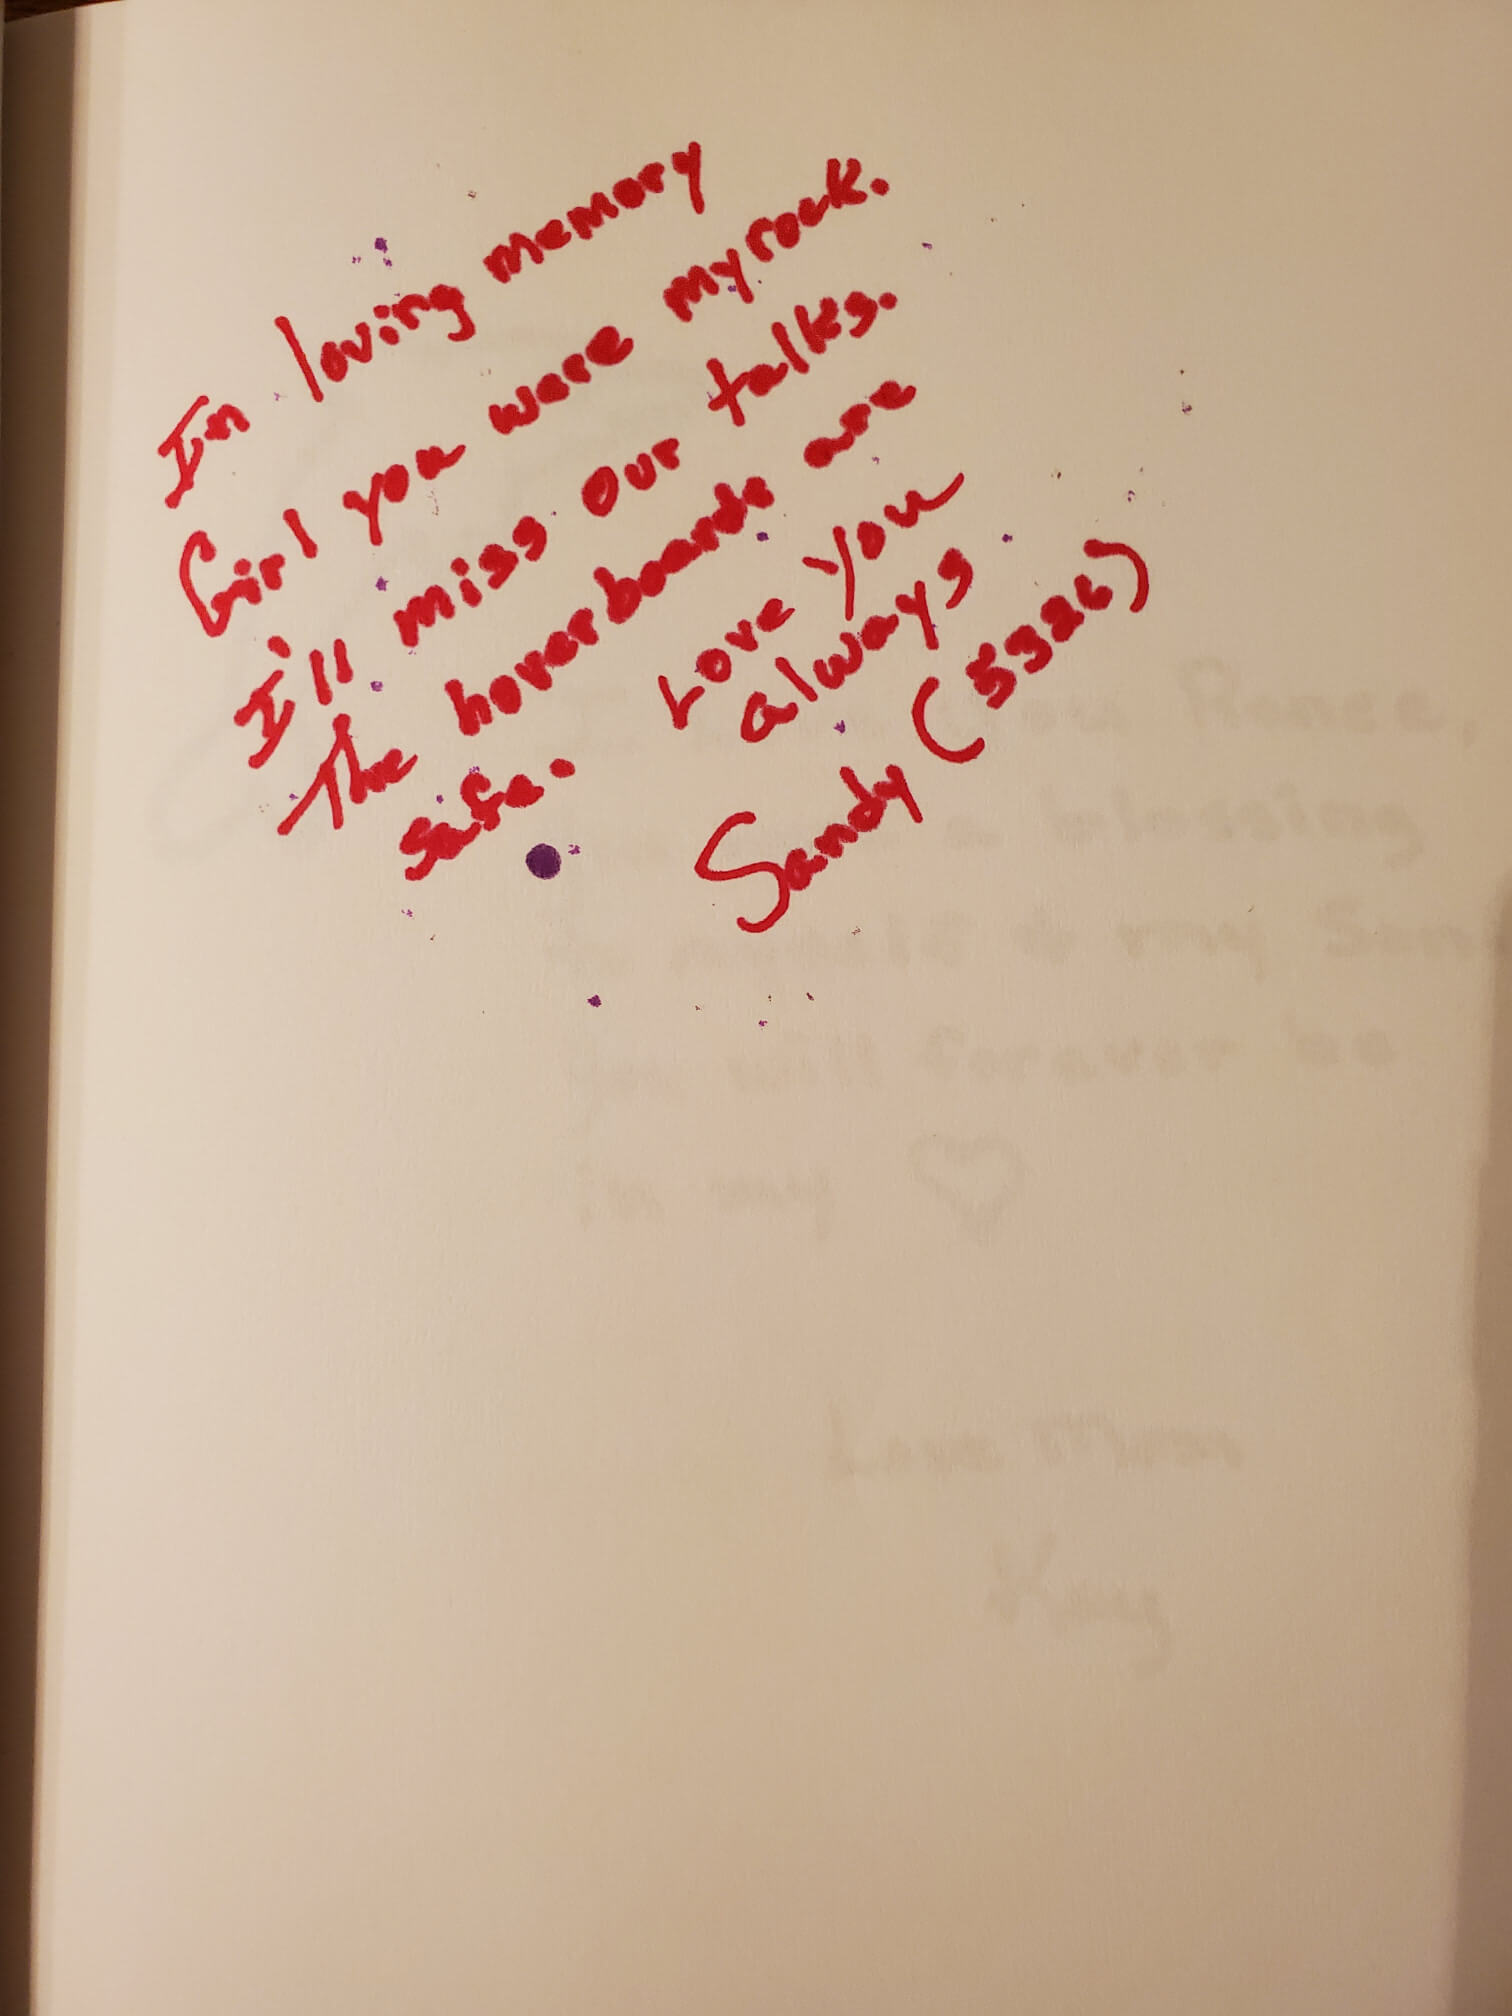 In loving memory
Girl you were my rock.
I'll miss our talks.
The hoverboards are
safe.
Love You
always
Sandy (5326)
Renee,
a blessing
to myself & my
will forever be
in my ♡
Love Mom
Kay